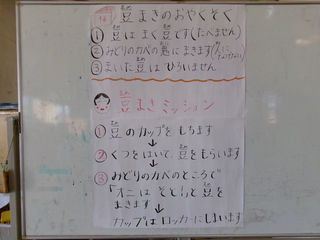 豆まきのおやくそく
① 豆はまく豆です(たべません)
② みどりのカベの鬼にまきます
③ まいた豆はひろいません
豆まきミッション
① 豆のカップをもちます
↓
② くつをはいて、豆をもらいます
↓
③ みどりのカベのところで
「オニは そと」と 豆を
まきます
↓
カップはロッカーにしまいます